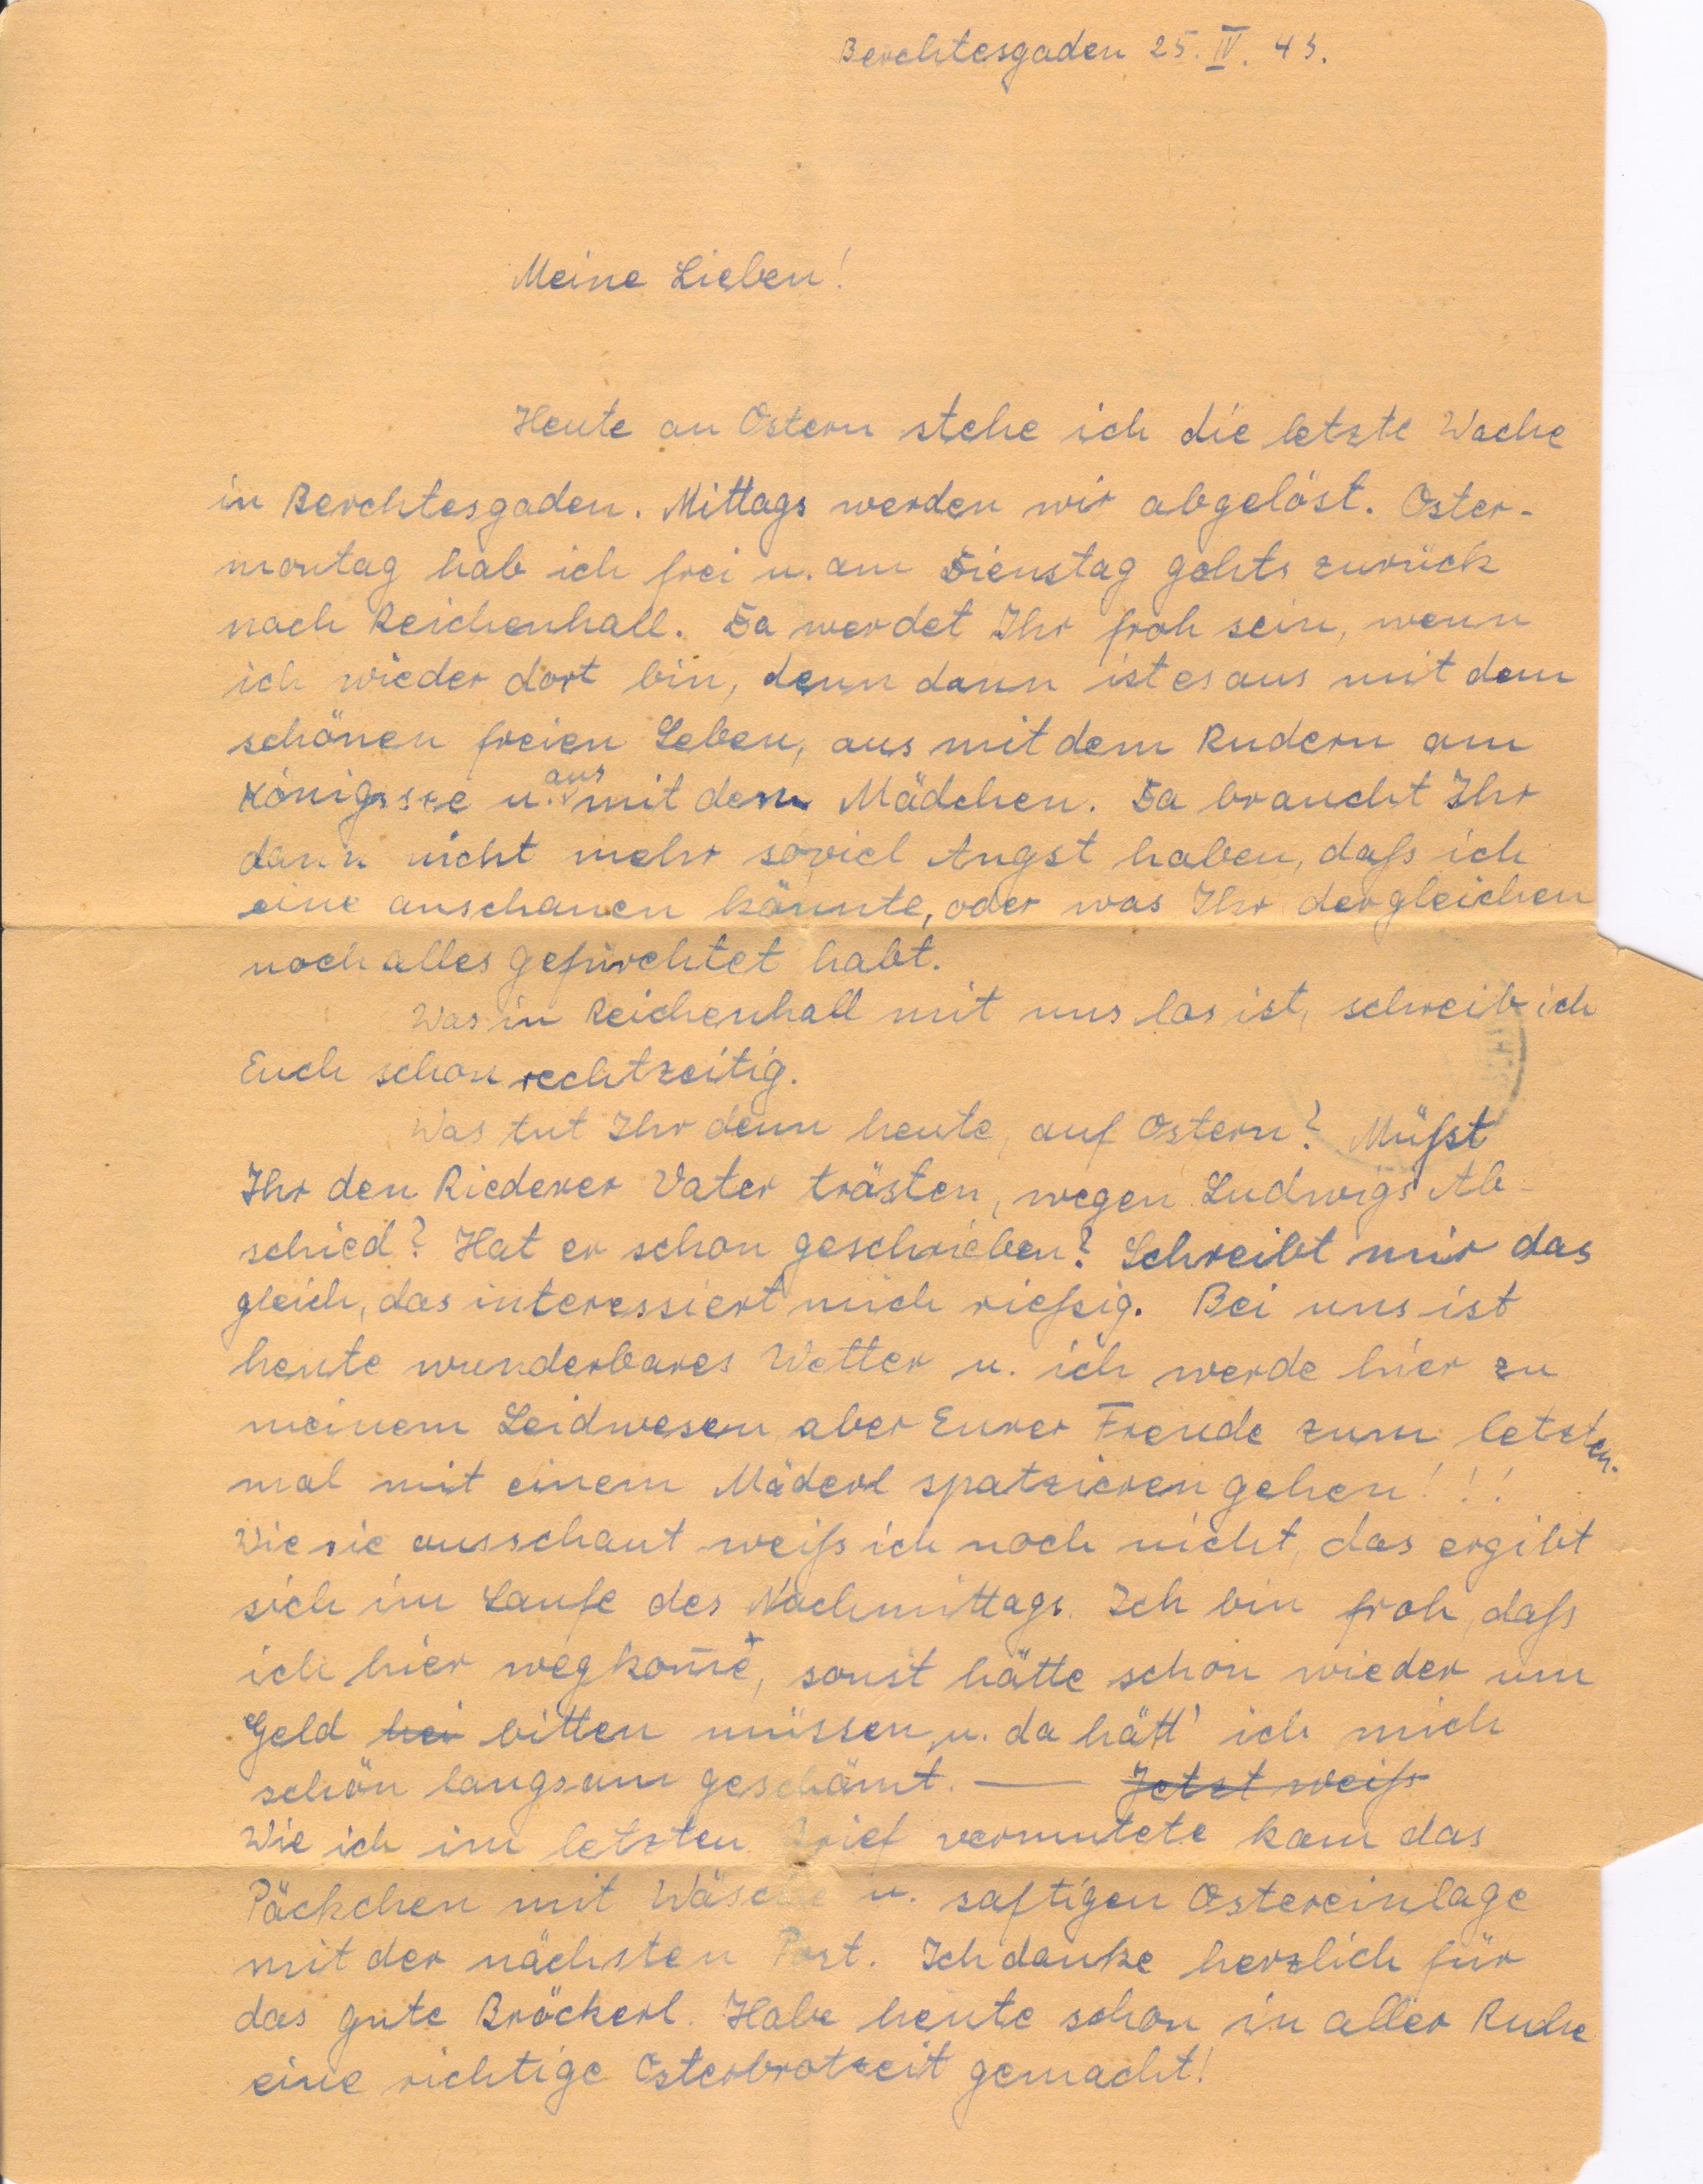 Berchtesgaden 25. IV. 43.
Meine Lieben!
Heute an Ostern stehe ich die letzte Wache
in Berchtesgaden. Mittags werden wir abgelöst. Oster-
montag hab ich frei u. am Dienstag gehts zurück
nach Reichenhall. Da werdet Ihr froh sein, wenn
ich wieder dort bin, denn dann ist es aus mit dem
schönen freien Leben, aus mit dem Rudern am
Königssee u. aus mit dem Mädchen. Da braucht Ihr
dann nicht mehr soviel Angst haben, daß ich
eine anschauen könnte, oder was Ihr dergleichen
noch alles gefürchtet habt.
Was in Reichenhall mit uns los ist, schreib ich
Euch schon rechtzeitig.
Was tut Ihr denn heute, auf Ostern? Müßt
Ihr den Riederer Vater trösten, wegen Ludwigs Ab-
schied? Hat er schon geschrieben? Schreibt mir das
gleich, das interessiert mich rießig. Bei uns ist
heute wunderbares Wetter u. ich werde hier zu
meinem Leidwesen aber Eurer Freude zum letzten-
mal mit einem Mäderl spatzieren gehen!!!
Wie sie ausschaut weiß ich noch nicht, das ergibt
sich im Laufe des Nachmittags. Ich bin froh, daß
ich hier wegkom̅e, sonst hätte schon wieder um
Geld hei bitten müssen, u. da hätt' ich mich
schön langsam geschämt. — Jetzt weiß
Wie ich im letzten Brief vermutete kam das
Päckchen mit Wäsche u. saftigen Ostereinlage
mit der nächsten Post. Ich danke herzlich für
das gute Bröckerl. Habe heute schon in aller Ruhe
eine richtige Osterbrotzeit gemacht!